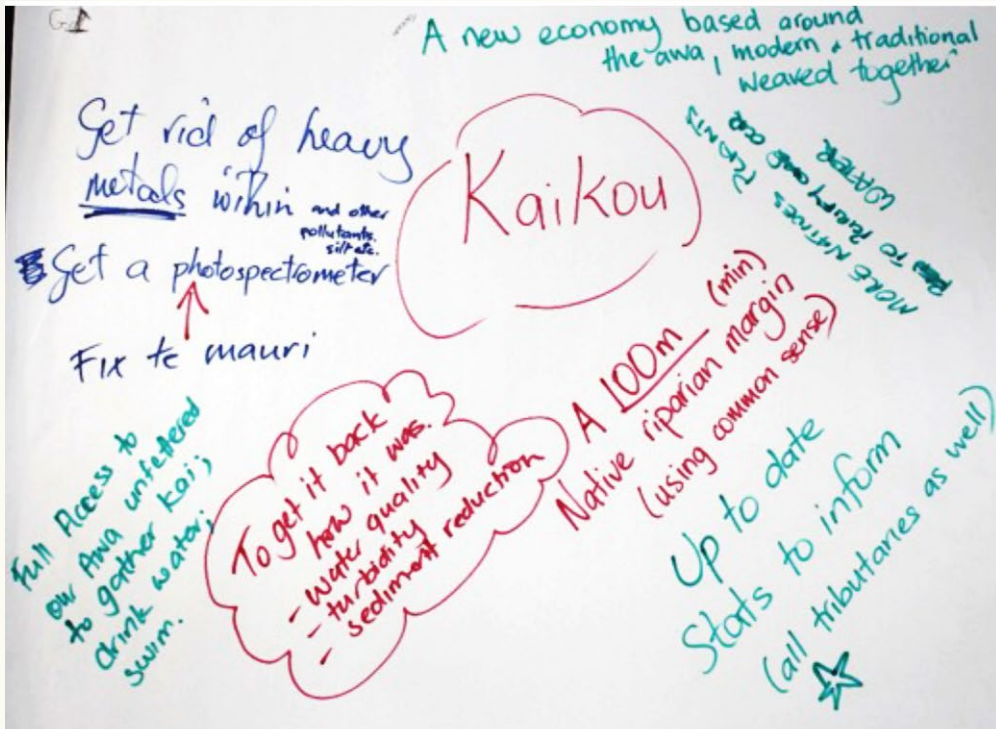 G1
A new economy based around
the awa, modern + traditional
weaved together
Get rid of heavy
metals within and other
pollutants.
silt etc.
Get a photospectrometer
Fix te mauri
Kaikou
MORE NATIVES PLANTS
TO PURIFY OUR
WATER
A 100m (min)
Native riparian margin
(using common sense)
To get it back
how it was.
- water quality
- turbidity
- sediment reduction
Full Access to
our Awa unfettered
to gather kai;
drink water;
swim.
Up to date
Stats to inform
(all tributaries as well)